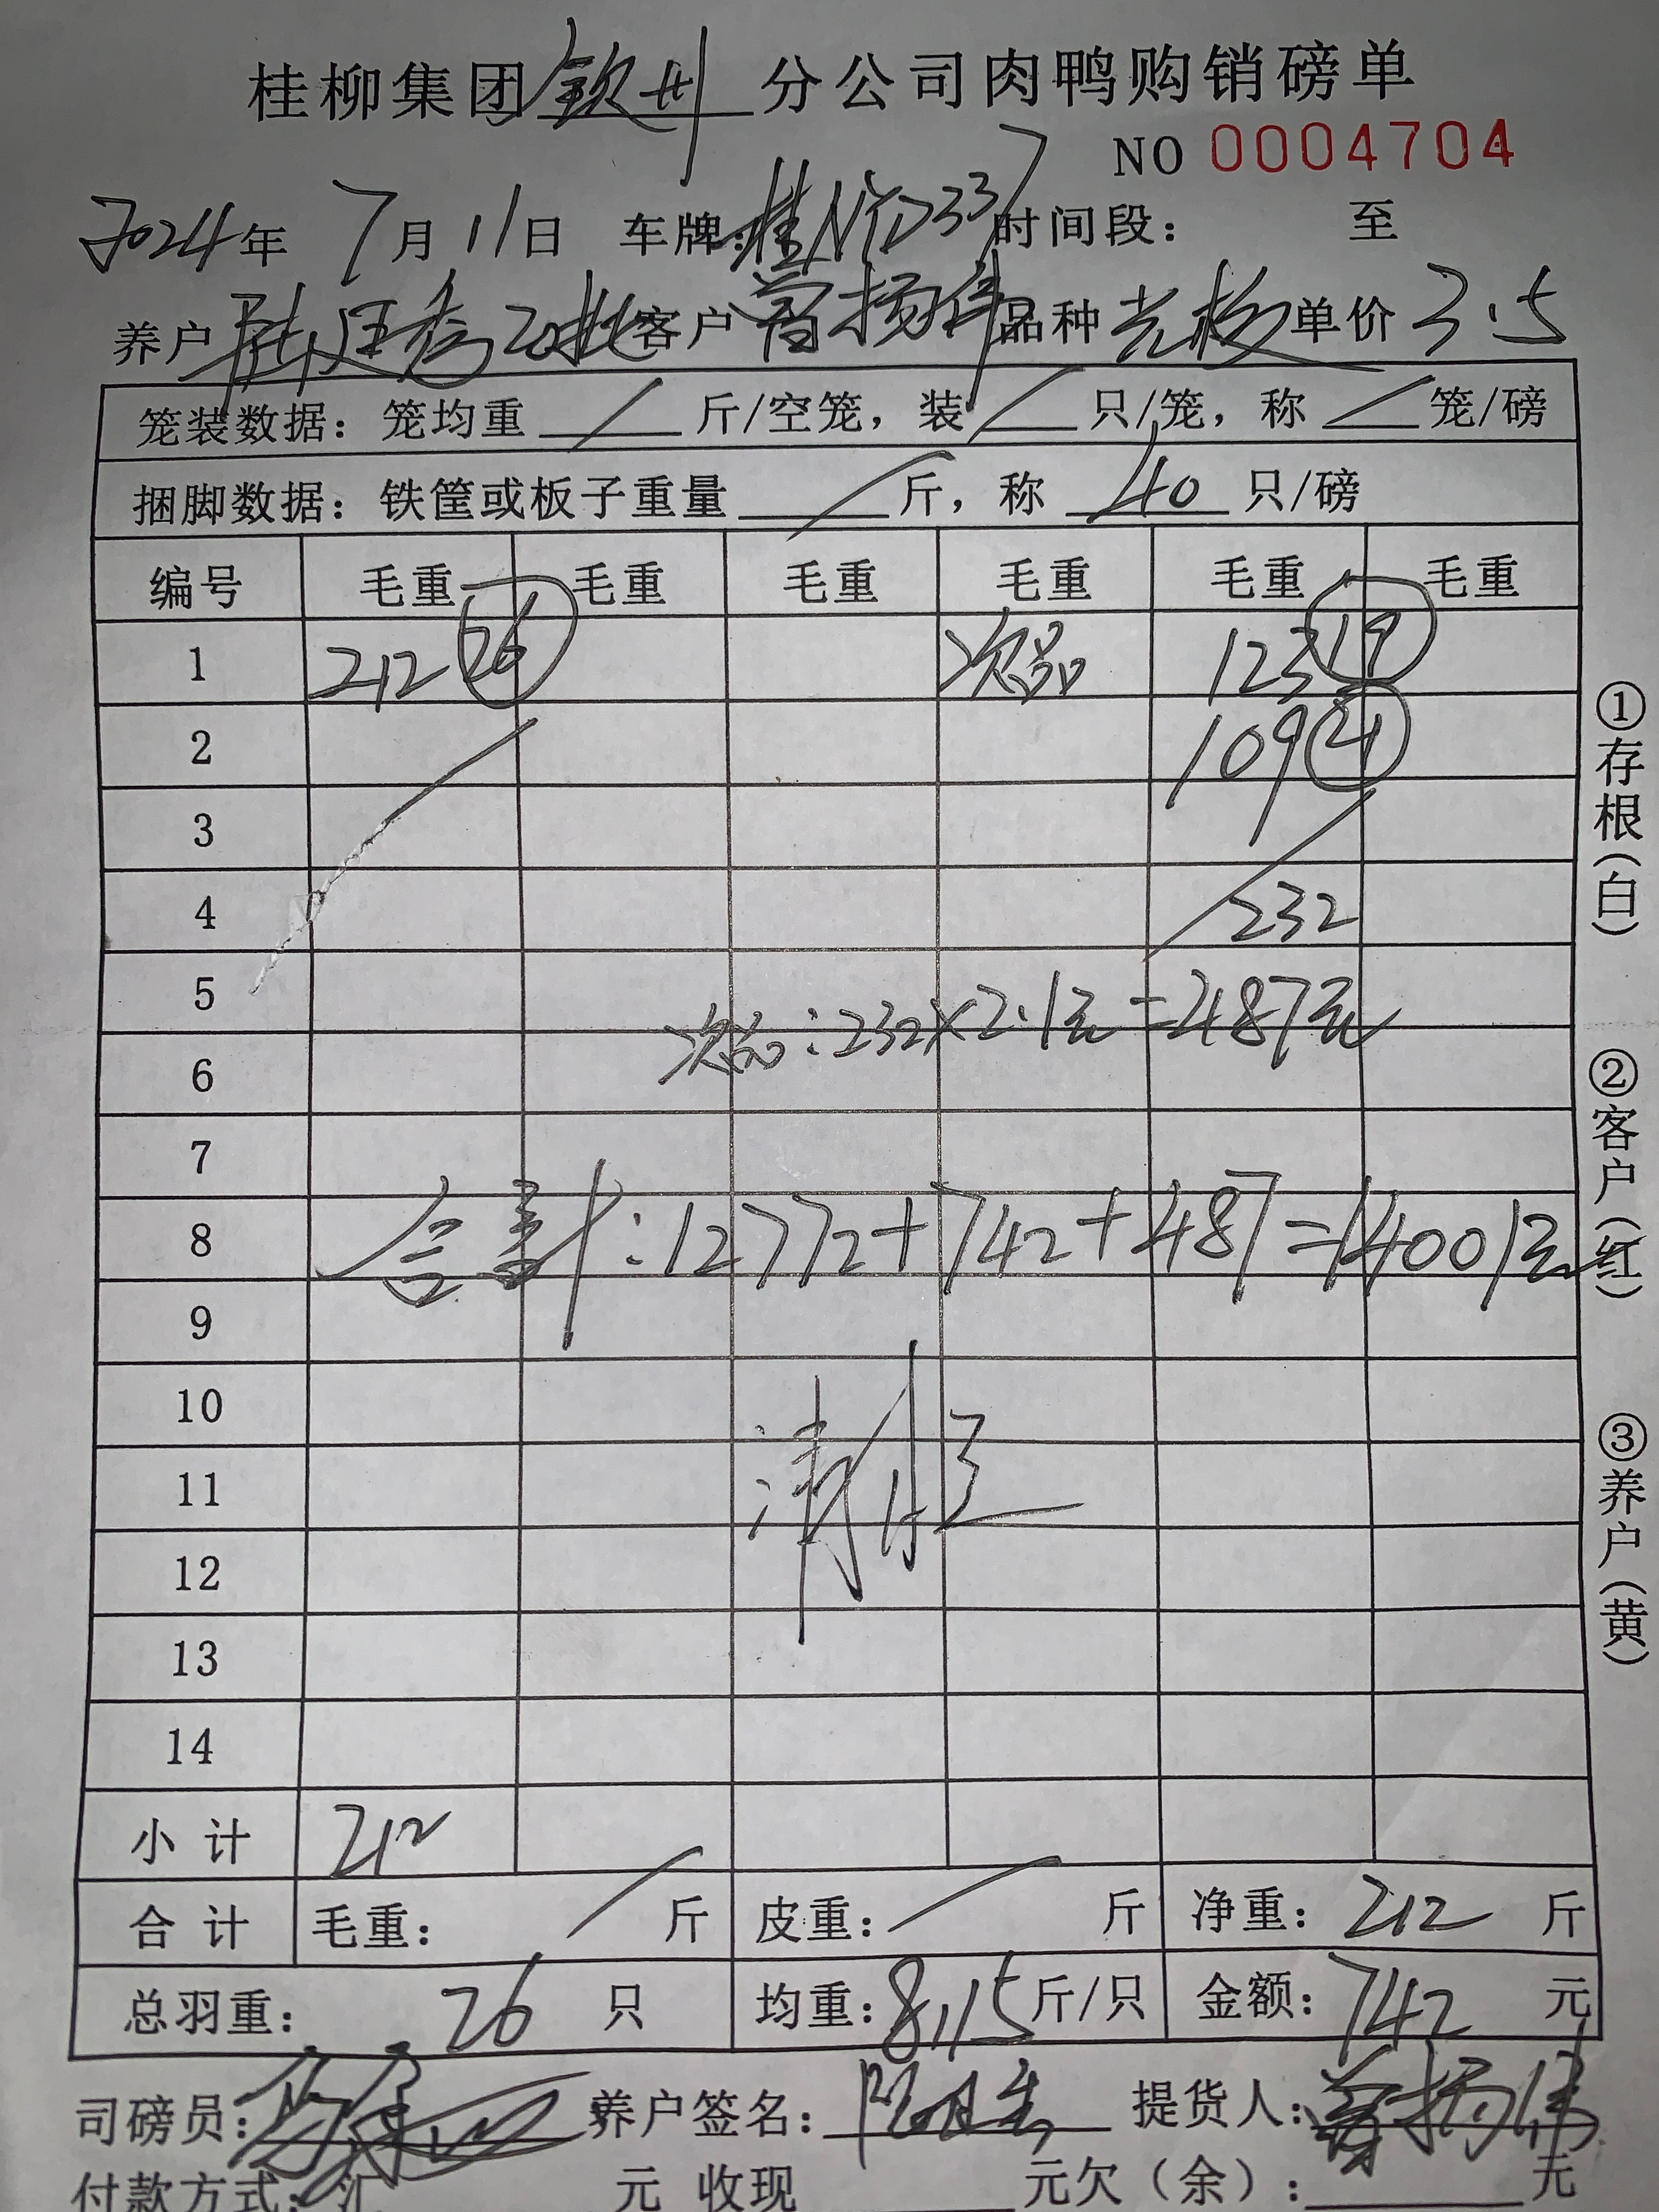 桂柳集团钦州分公司肉鸭购销磅单
NO 0004704
2024年 7月11日 车牌:桂NYD337 时间段: 至
养户 20批 客户 曾扬伟 品种 单价 3.5
笼装数据: 笼均重 / 斤/空笼, 装 / 只/笼, 称 / 笼/磅
捆脚数据: 铁筐或板子重量 / 斤, 称 40 只/磅
编号 毛重 毛重 毛重 毛重 毛重 毛重
1 212 26 次品 123 19
2 109 21
3
4 232
5
次品:232×2.1元=487元
6
7
8 合计:12772+742+487=14001元
9
10
11 清
12
13
14
小计 212
合计 毛重: / 斤 皮重: / 斤 净重: 212 斤
总羽重: 26 只 均重: 8.15 斤/只 金额: 742 元
司磅员: 养户签名: 提货人: 曾扬伟
付款方式: 汇 元 收现 元欠(余): 元
①存根(白)
②客户(红)
③养户(黄)